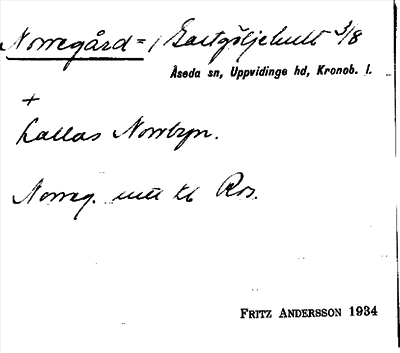 Norregård = i Gastgöljehult 3/8
Åseda sn, Uppvidinge hd, Kronob. l.
+
kallas Norrbyn.
Norreg. intill
FRITZ ANDERSSON 1934